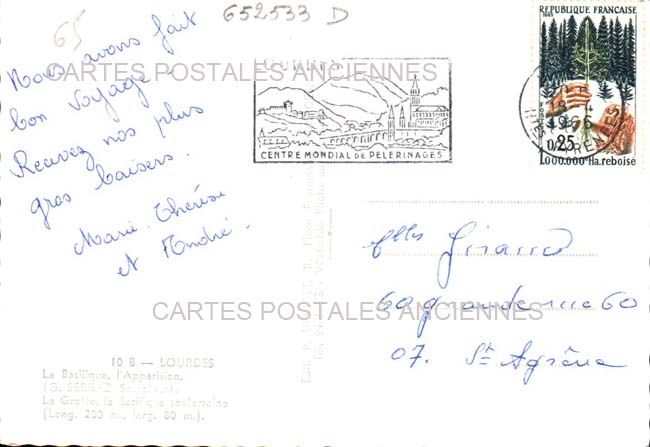 65
652533 D
Nous avons fait
bon voyage.
Recevez nos plus
gros baisers.
Marie-Thérèse
et André.
CARTES POSTALES ANCIENNES
LOURDES
CENTRE MONDIAL DE PELERINAGES
REPUBLIQUE FRANÇAISE
1965
0,25
1.000.000e Ha. reboisé
Giraud
60 grande rue 60
07. St Agrève
CARTES POSTALES ANCIENNES
10 B — LOURDES
La Basilique, l'Apparition,
(G. SERRAZ Sculpteur).
La Grotte, la Basilique souterraine
(Long. 200 m., larg. 80 m.).